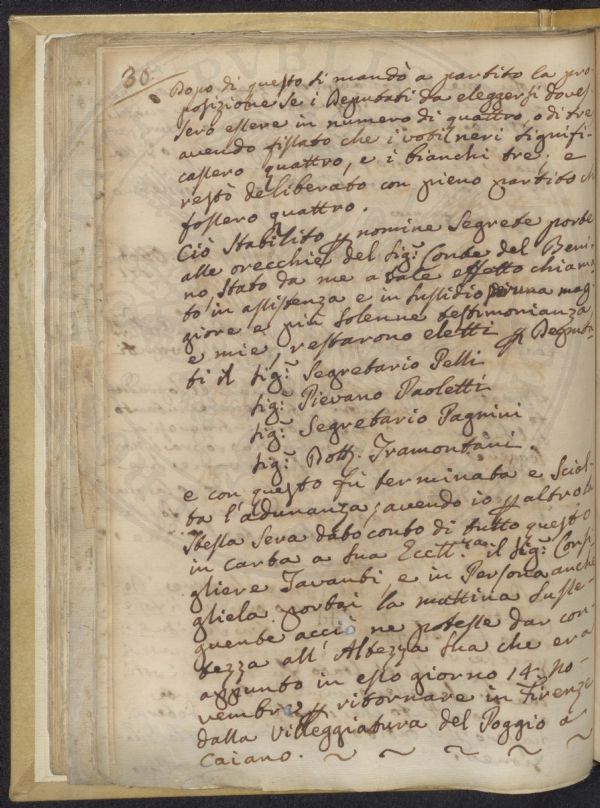 30.
Dopo di questo si mandò a partito la pro
posizione se i Deputati da eleggersi doves
sero essere in numero di quattro, o di tre
avendo fissato che i voti neri signifi-
cassero quattro, e i bianchi tre; e
restò deliberato con pieno partito ch
fossero quattro.
Ciò stabilito p nomine segrete porte
alle orecchie del Sig.r Conte del Beni
no stato da me a tale effetto chiama
to in assistenza e in sussidio di una mag
giore e più solenne testimonianza
e mie, restarono eletti p Deputa
ti il Sig.r Segretario Pelli
Sig.r Pievano Paoletti
Sig.r Segretario Pagnini
Sig.r Dott. Tramontani.
e con questo fù terminata e sciol
ta l'adunanza, avendo io p altro la
stessa sera dato conto di tutto questo
in carta a Sua Ecctt.za il Sig.r Consi
gliere Tavanti, e in Persona anche
gliela portai la mattina susse-
guente acciò ne potesse dar con
tezza all'Altezza Sua che era
appunto in esso giorno 14 No
vembre p ritornare in Firenze
dalla Villeggiatura del Poggio a
Caiano. ~ ~ ~ ~ ~